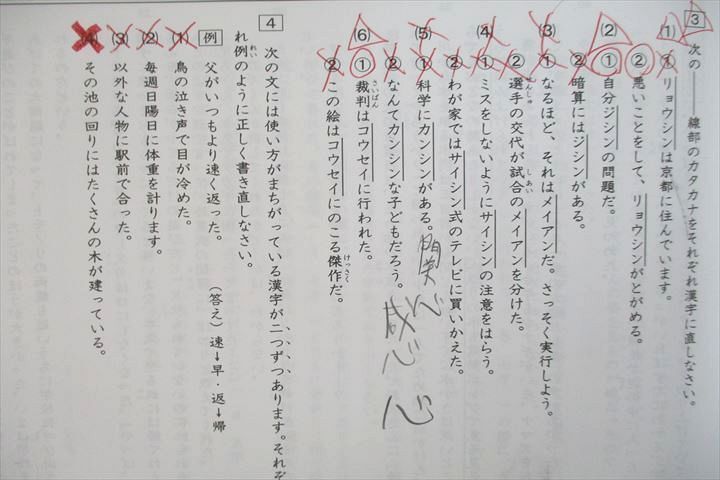 3 次の――線部のカタカナをそれぞれ漢字に直しなさい。
(1) ① リョウシンは京都に住んでいます。
② 悪いことをして、リョウシンがとがめる。
(2) ① 自分ジシンの問題だ。
② 暗算にはジシンがある。
(3) ① なるほど、それはメイアンだ。さっそく実行しよう。
② 選手の交代が試合のメイアンを分けた。
せんしゅ
しあい
(4) ① ミスをしないようにサイシンの注意をはらう。
② わが家ではサイシン式のテレビに買いかえた。
(5) ① 科学にカンシンがある。
関心
② なんてカンシンな子どもだろう。
感心
心
(6) ① 裁判はコウセイに行われた。
さいばん
② この絵はコウセイにのこる傑作だ。
けっさく
4 次の文には使い方がまちがっている漢字が二つずつあります。それぞ
れ例のように正しく書き直しなさい。
れい
例 父がいつもより速く返った。 (答え) 速→早・返→帰
(1) 鳥の泣き声で目が冷めた。
(2) 毎週日陽日に体重を計ります。
(3) 以外な人物に駅前で合った。
(4) その池の回りにはたくさんの木が建っている。